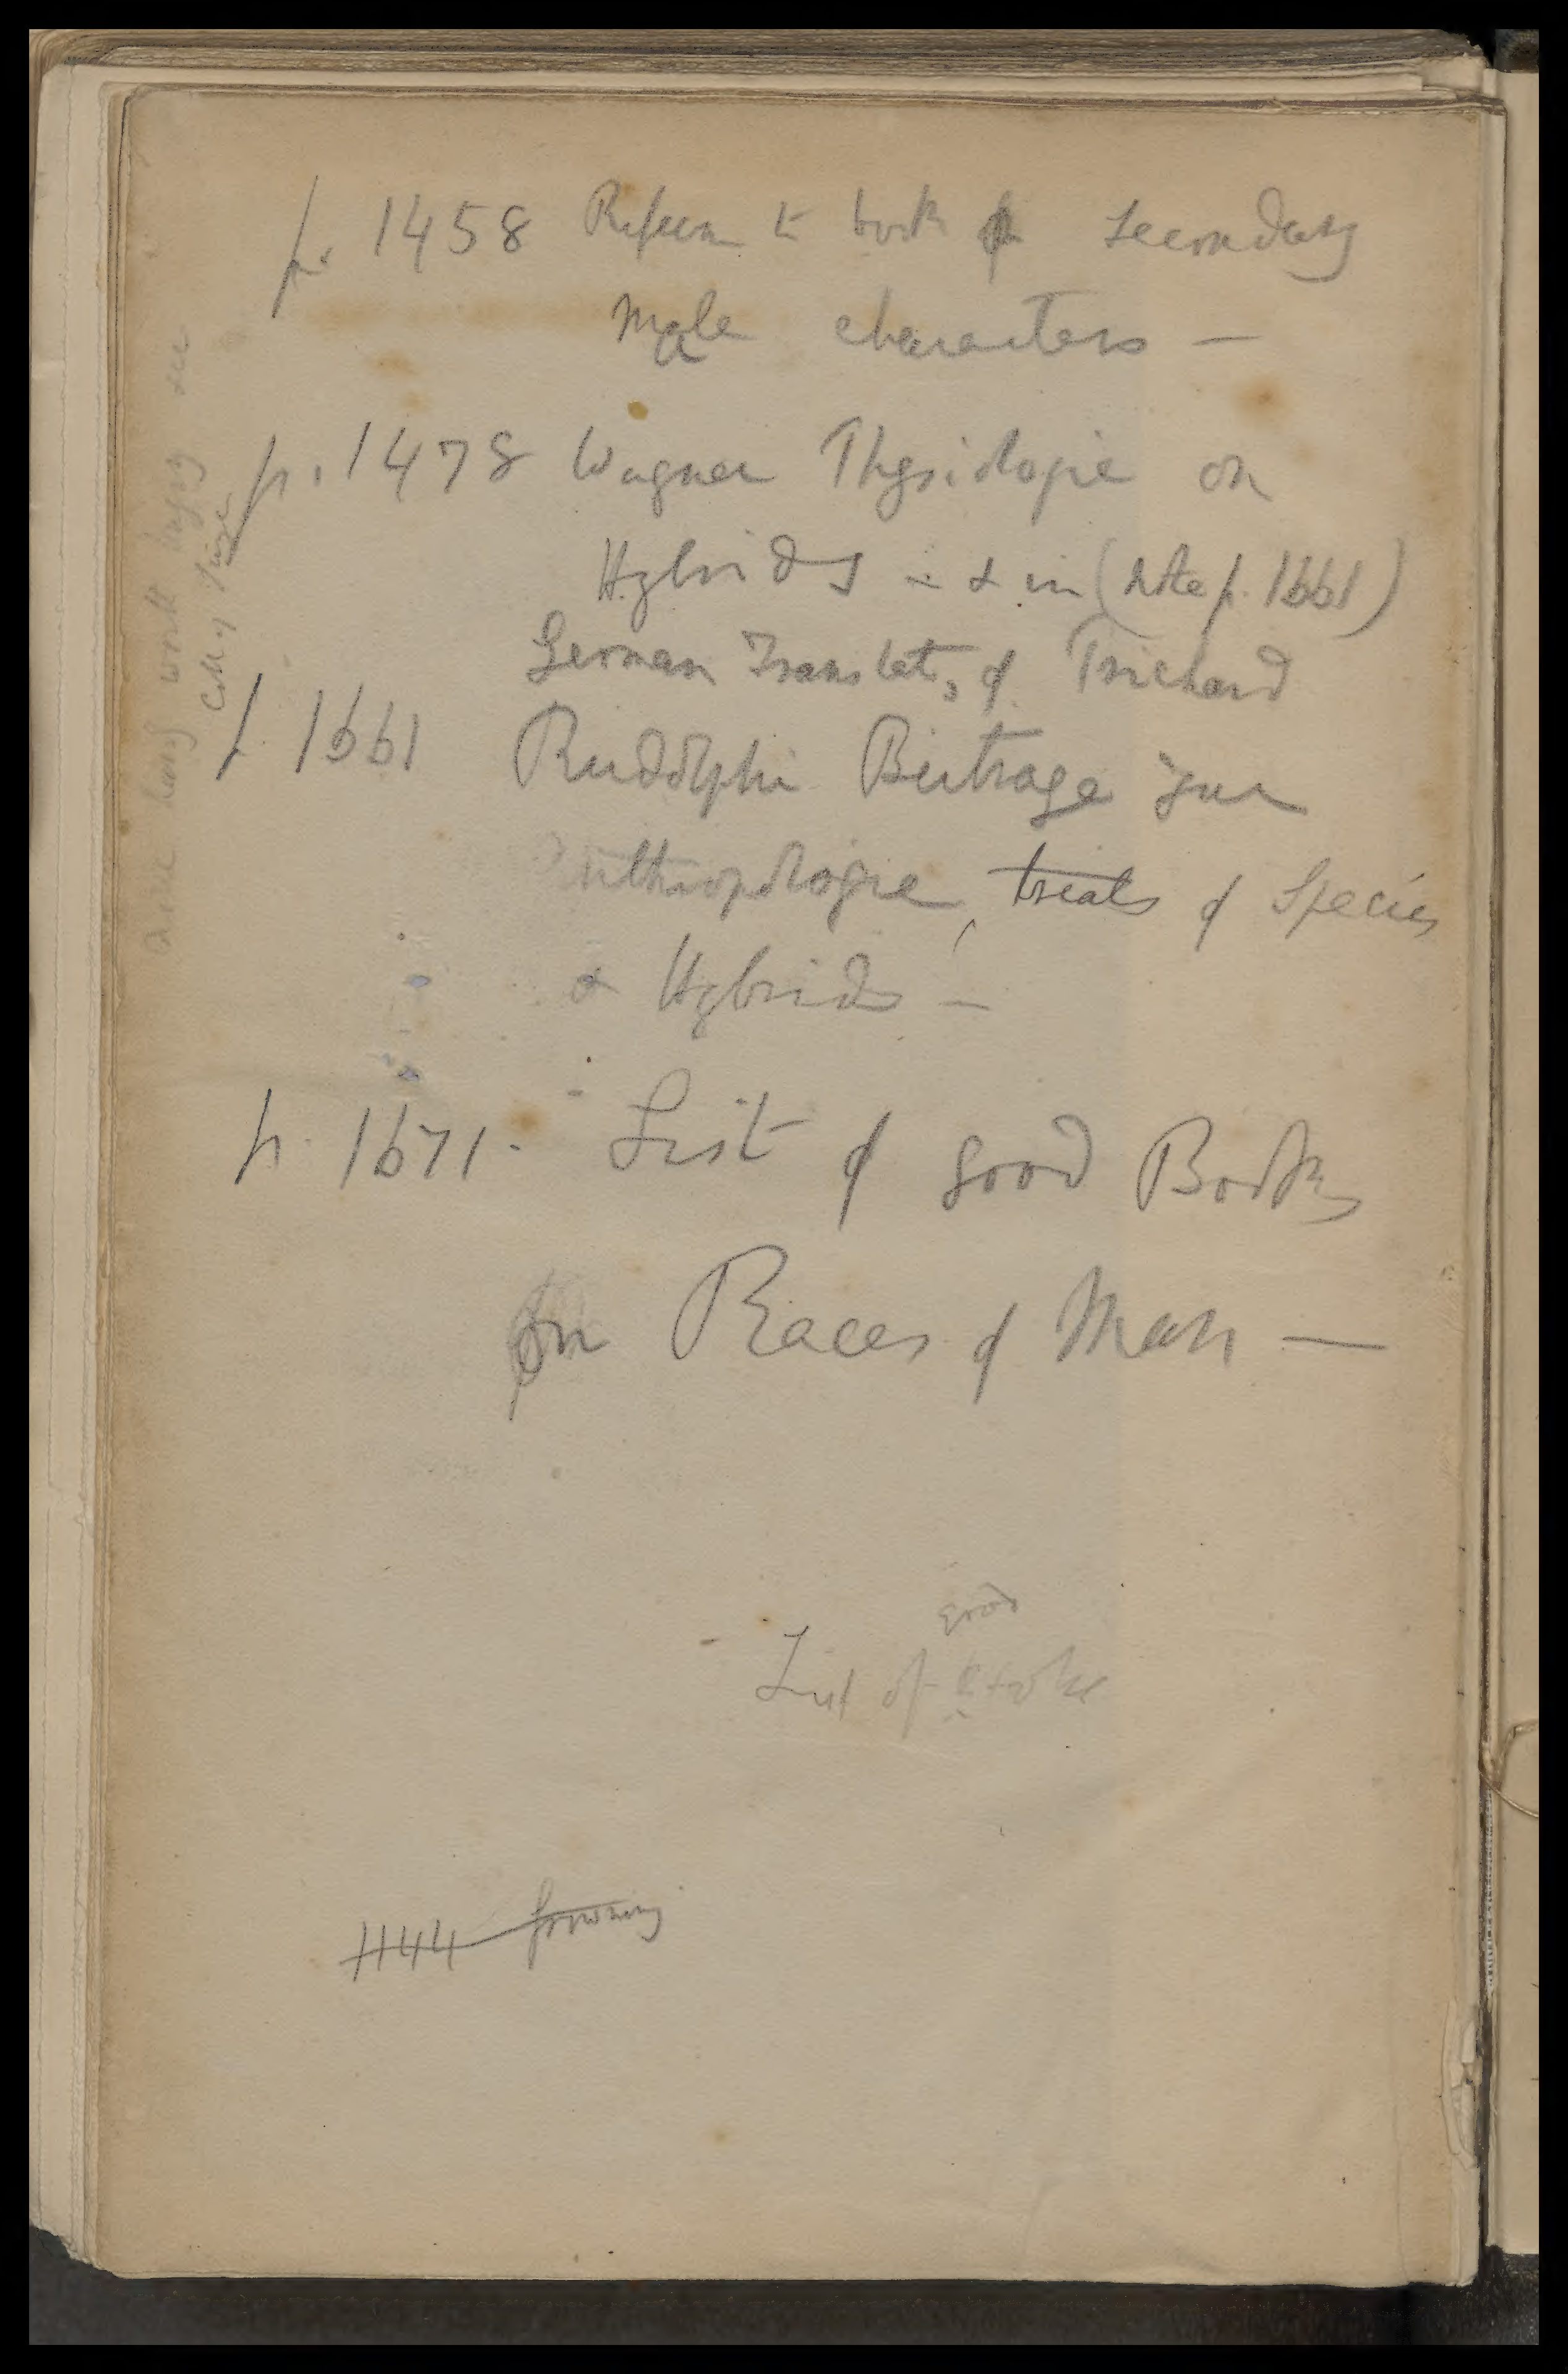 p. 1458 Referen to book on secondary
male characters —
p. 1478 Wagner Physiologie on
Hybrids – & in (Note p. 1661)
German Translat. of Prichard
p. 1661 Rudolphi Beitrage zur
Anthropologie, treats of Species
& Hybrids —
p. 1671. List of good Books
on Races of Man —
good
List of
1144 Browning